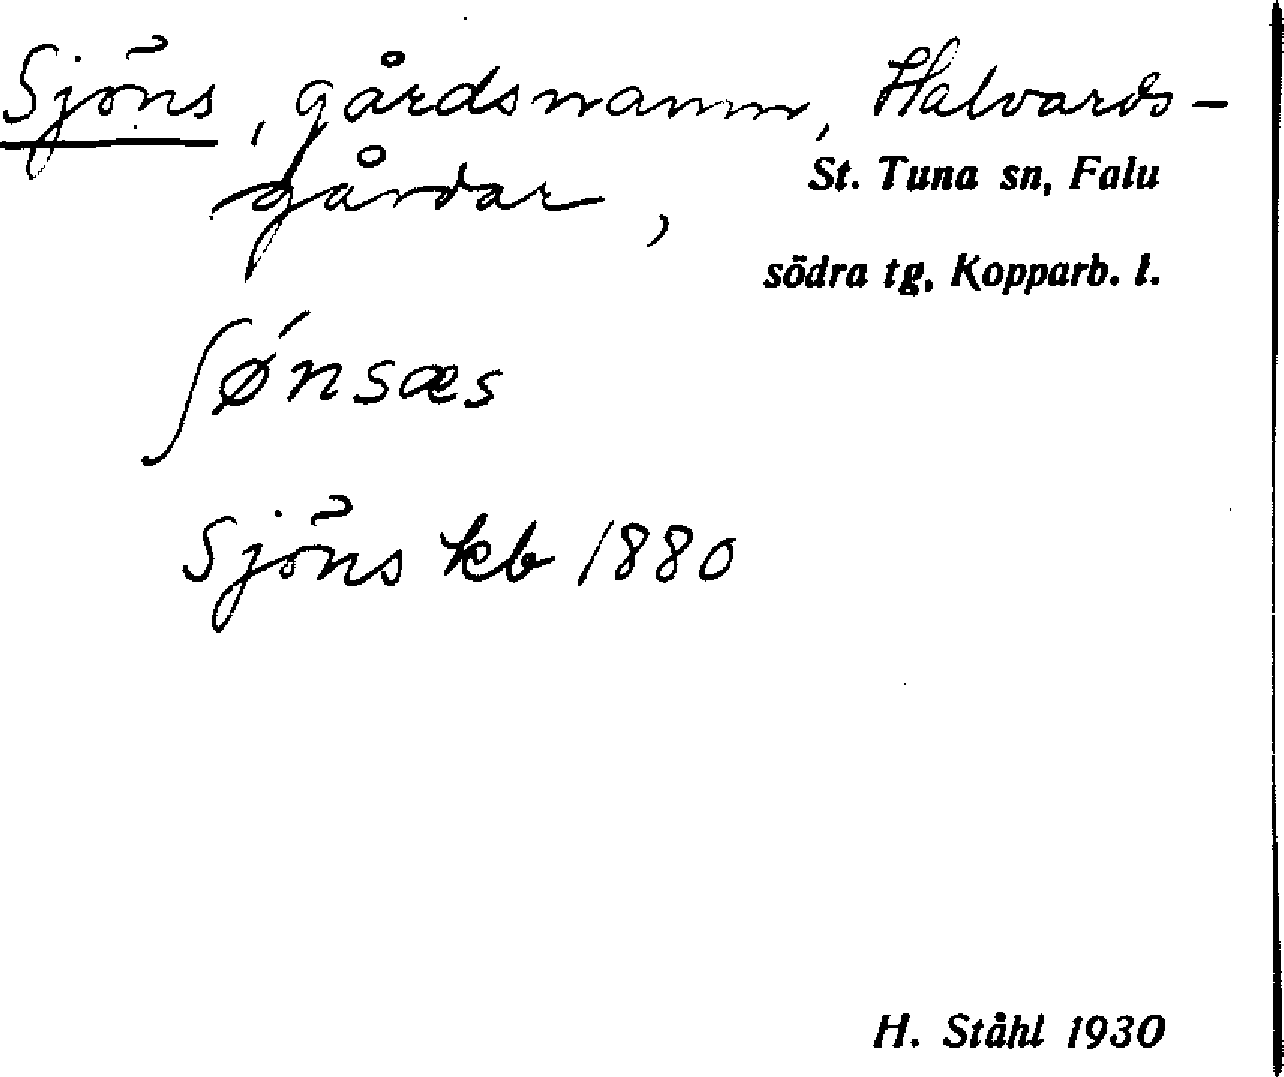 Sjöns, gårdsnamn, Halvards-
gårdar,
St. Tuna sn, Falu
södra tg, Kopparb. l.
ʃǿnsæs
Sjöns kb 1880
H. Ståhl 1930